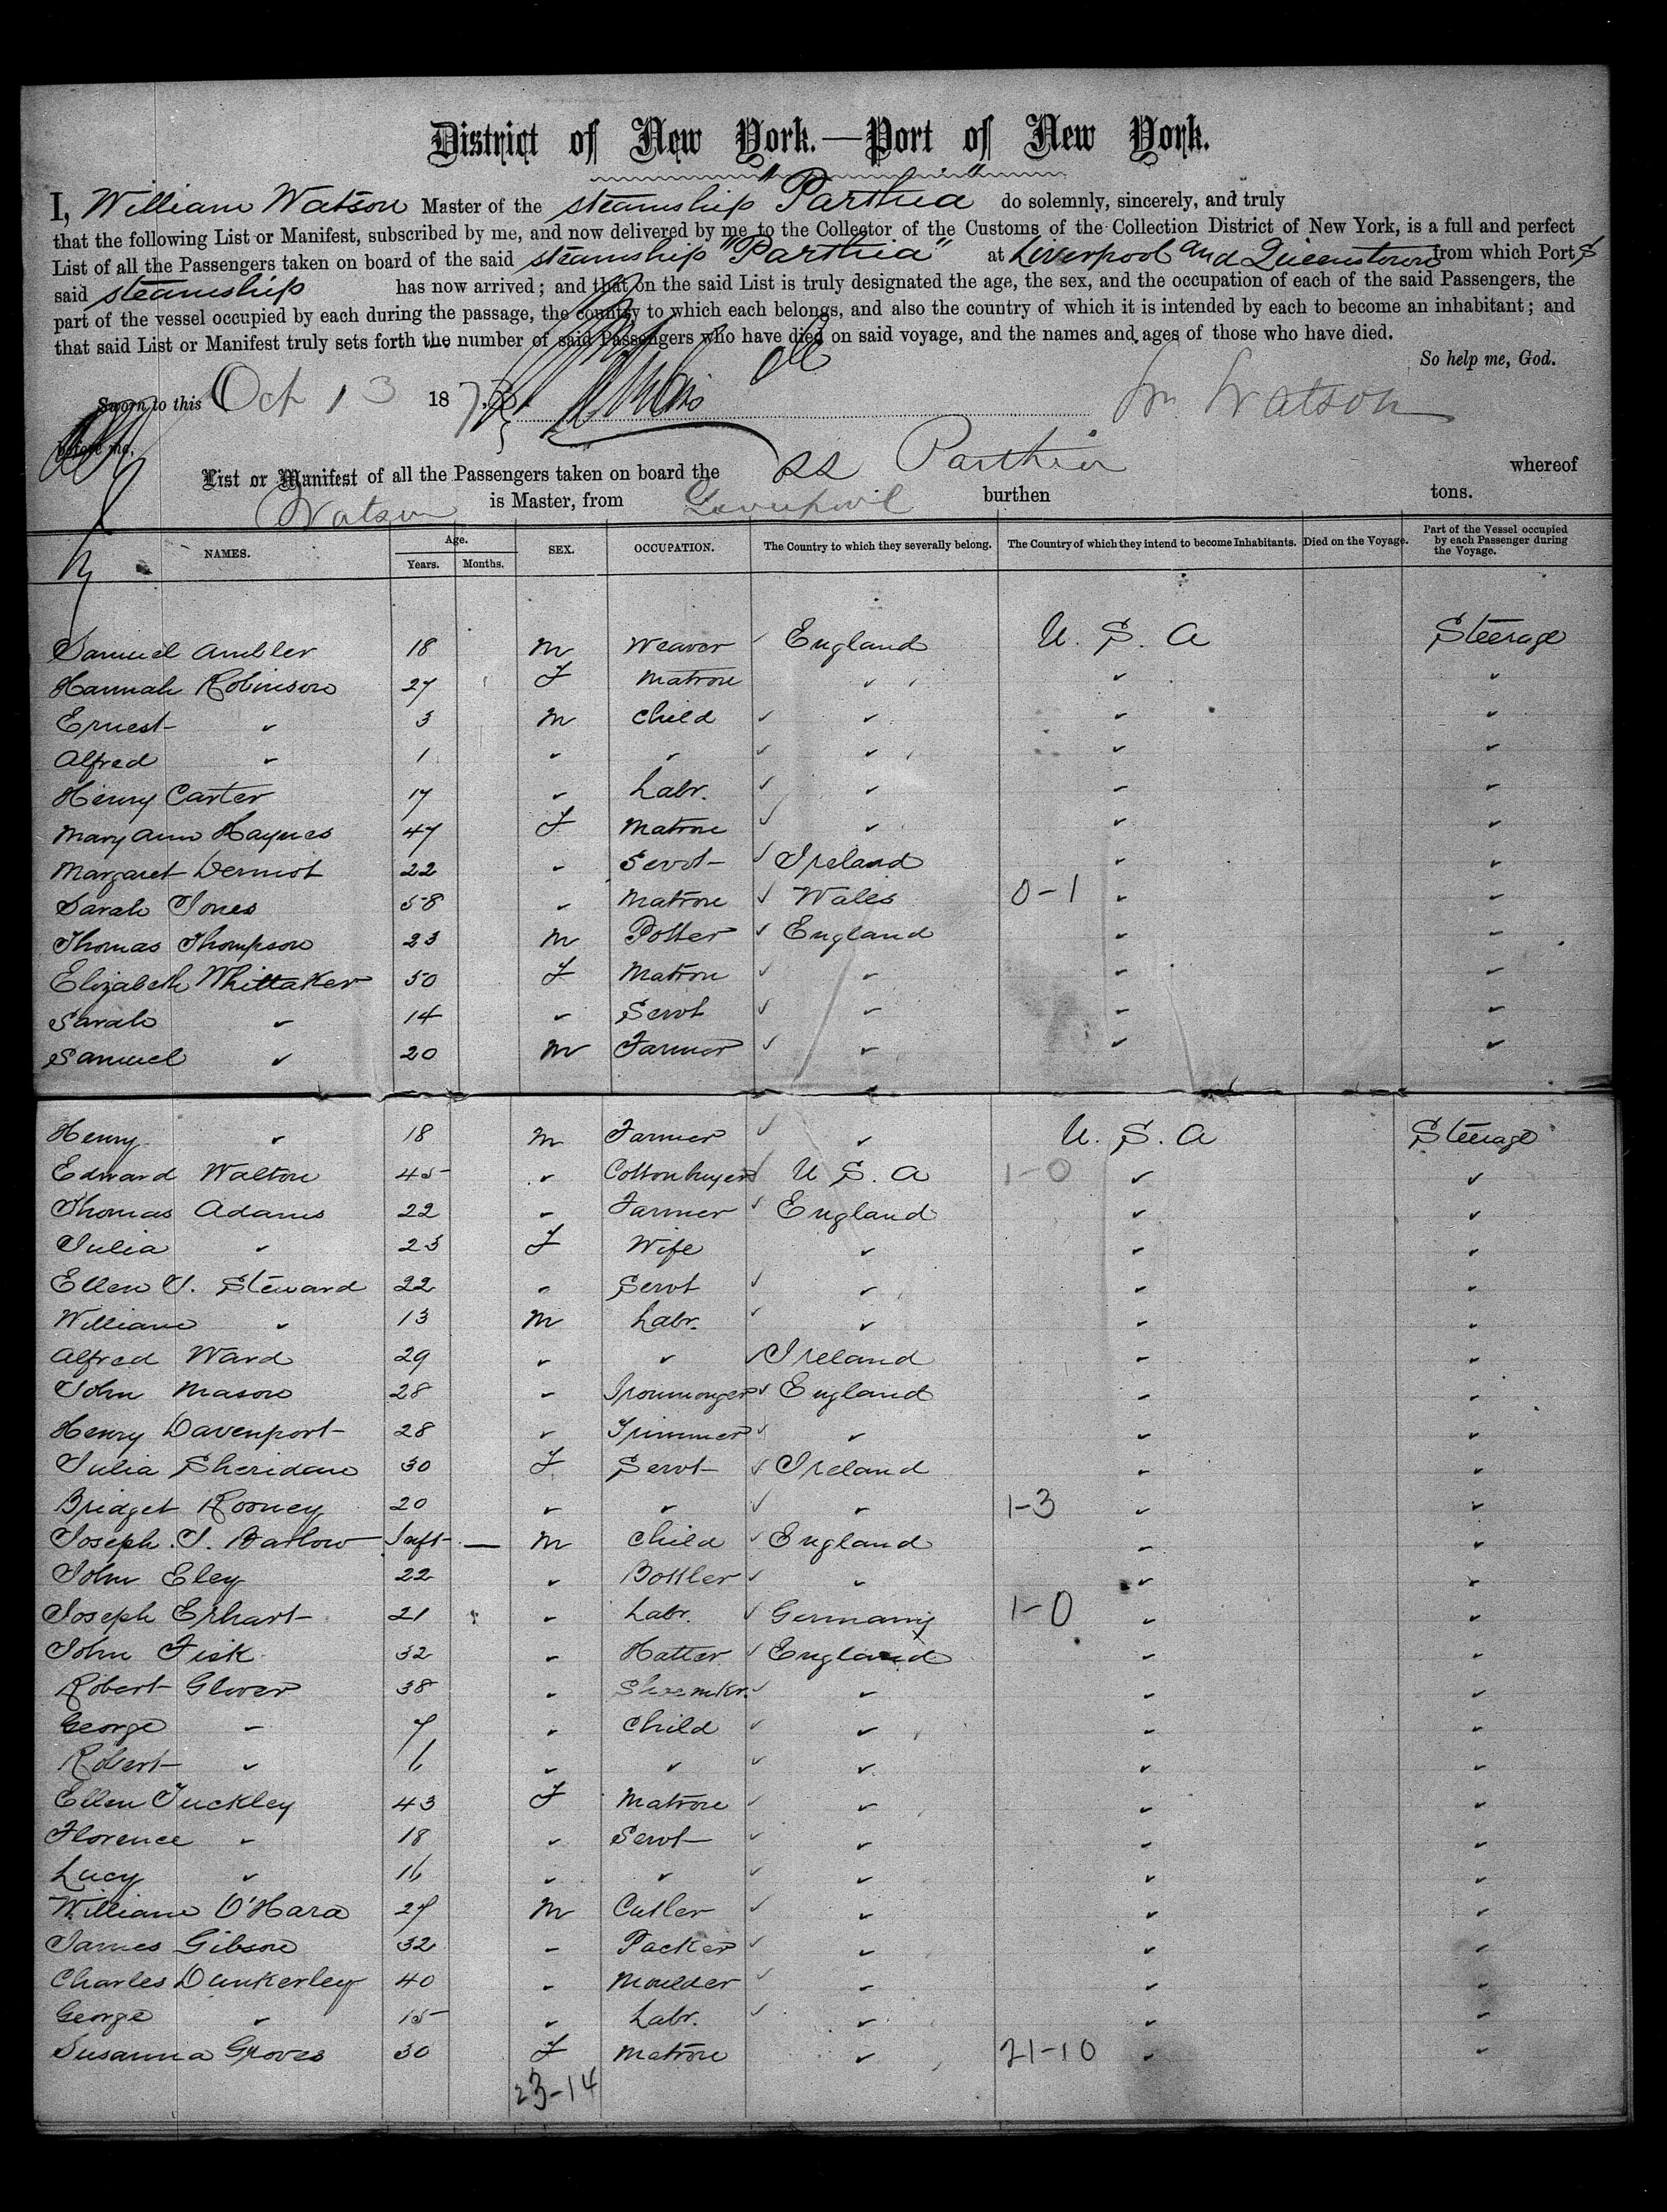 District of New York.—Port of New York.
I, William Watson Master of the steamship "Parthia" do solemnly, sincerely, and truly
that the following List or Manifest, subscribed by me, and now delivered by me to the Collector of the Customs of the Collection District of New York, is a full and perfect
List of all the Passengers taken on board of the said steamship "Parthia" at Liverpool and Queenstown from which Ports
said steamship has now arrived; and that on the said List is truly designated the age, the sex, and the occupation of each of the said Passengers, the
part of the vessel occupied by each during the passage, the country to which each belongs, and also the country of which it is intended by each to become an inhabitant; and
that said List or Manifest truly sets forth the number of said Passengers who have died on said voyage, and the names and ages of those who have died.
So help me, God.
Sworn to this Oct 13 187 Wm Watson
before me,
List or Manifest of all the Passengers taken on board the SS Parthia whereof
Watson is Master, from Liverpool burthen tons.
NAMES. Age. Years. Months. SEX. OCCUPATION. The Country to which they severally belong. The Country of which they intend to become Inhabitants. Died on the Voyage. Part of the Vessel occupied by each Passenger during the Voyage.
Samuel Ambler 18 M Weaver ✓ England U. S. A Steerage
Hannah Robinson 27 F Matron ✓ ✓ ✓
Ernest ✓ 3 M Child ✓ ✓ ✓ ✓
Alfred ✓ 1 ✓ ✓ ✓ ✓ ✓ ✓
Henry Carter 17 ✓ Labr. ✓ ✓ ✓ ✓
Mary Ann Haynes 47 F Matron ✓ ✓ ✓ ✓
Margaret Dermot 22 ✓ Servt ✓ Ireland ✓ ✓
Sarah Jones 58 ✓ Matron ✓ Wales 0-1 ✓ ✓
Thomas Thompson 23 M Potter ✓ England ✓ ✓
Elizabeth Whittaker 50 F Matron ✓ ✓ ✓ ✓
Sarah ✓ 14 ✓ Servt ✓ ✓ ✓ ✓
Samuel ✓ 20 M Farmer ✓ ✓ ✓ ✓
Henry ✓ 18 M Farmer ✓ ✓ U. S. A Steerage
Edward Walton 45 ✓ Cotton buyer ✓ U S. A 1-0 ✓ ✓
Thomas Adams 22 ✓ Farmer ✓ England ✓ ✓
Julia ✓ 23 F Wife ✓ ✓ ✓
Ellen J. Steward 22 ✓ Servt ✓ ✓ ✓ ✓
William ✓ 13 M Labr. ✓ ✓ ✓ ✓
Alfred Ward 29 ✓ ✓ ✓ Ireland ✓ ✓
John Mason 28 ✓ Ironmonger ✓ England ✓ ✓
Henry Davenport 28 ✓ Trimmer ✓ ✓ ✓ ✓
Julia Sheridan 30 F Servt ✓ Ireland ✓ ✓
Bridget Rooney 20 ✓ ✓ ✓ ✓ 1-3 ✓ ✓
Joseph. J. Barlow Inft — M Child ✓ England ✓ ✓
John Eley 22 ✓ Bottler ✓ ✓ ✓ ✓
Joseph Erhart 21 ✓ Labr. ✓ Germany 1-0 ✓ ✓
John Fisk 32 ✓ Hatter ✓ England ✓ ✓
Robert Glover 38 ✓ Shoemkr. ✓ ✓ ✓ ✓
George ✓ 7 ✓ Child ✓ ✓ ✓ ✓
Robert ✓ 6 ✓ ✓ ✓ ✓ ✓ ✓
Ellen Tuckley 43 F Matron ✓ ✓ ✓ ✓
Florence ✓ 18 ✓ Servt ✓ ✓ ✓ ✓
Lucy ✓ 16 ✓ ✓ ✓ ✓ ✓ ✓
William O'Hara 27 M Cutler ✓ ✓ ✓ ✓
James Gibson 32 ✓ Packer ✓ ✓ ✓ ✓
Charles Dunkerley 40 ✓ Moulder ✓ ✓ ✓ ✓
George ✓ 15 ✓ Labr. ✓ ✓ ✓ ✓
Susanna Groves 30 F Matron ✓ 21-10 ✓ ✓
23-14